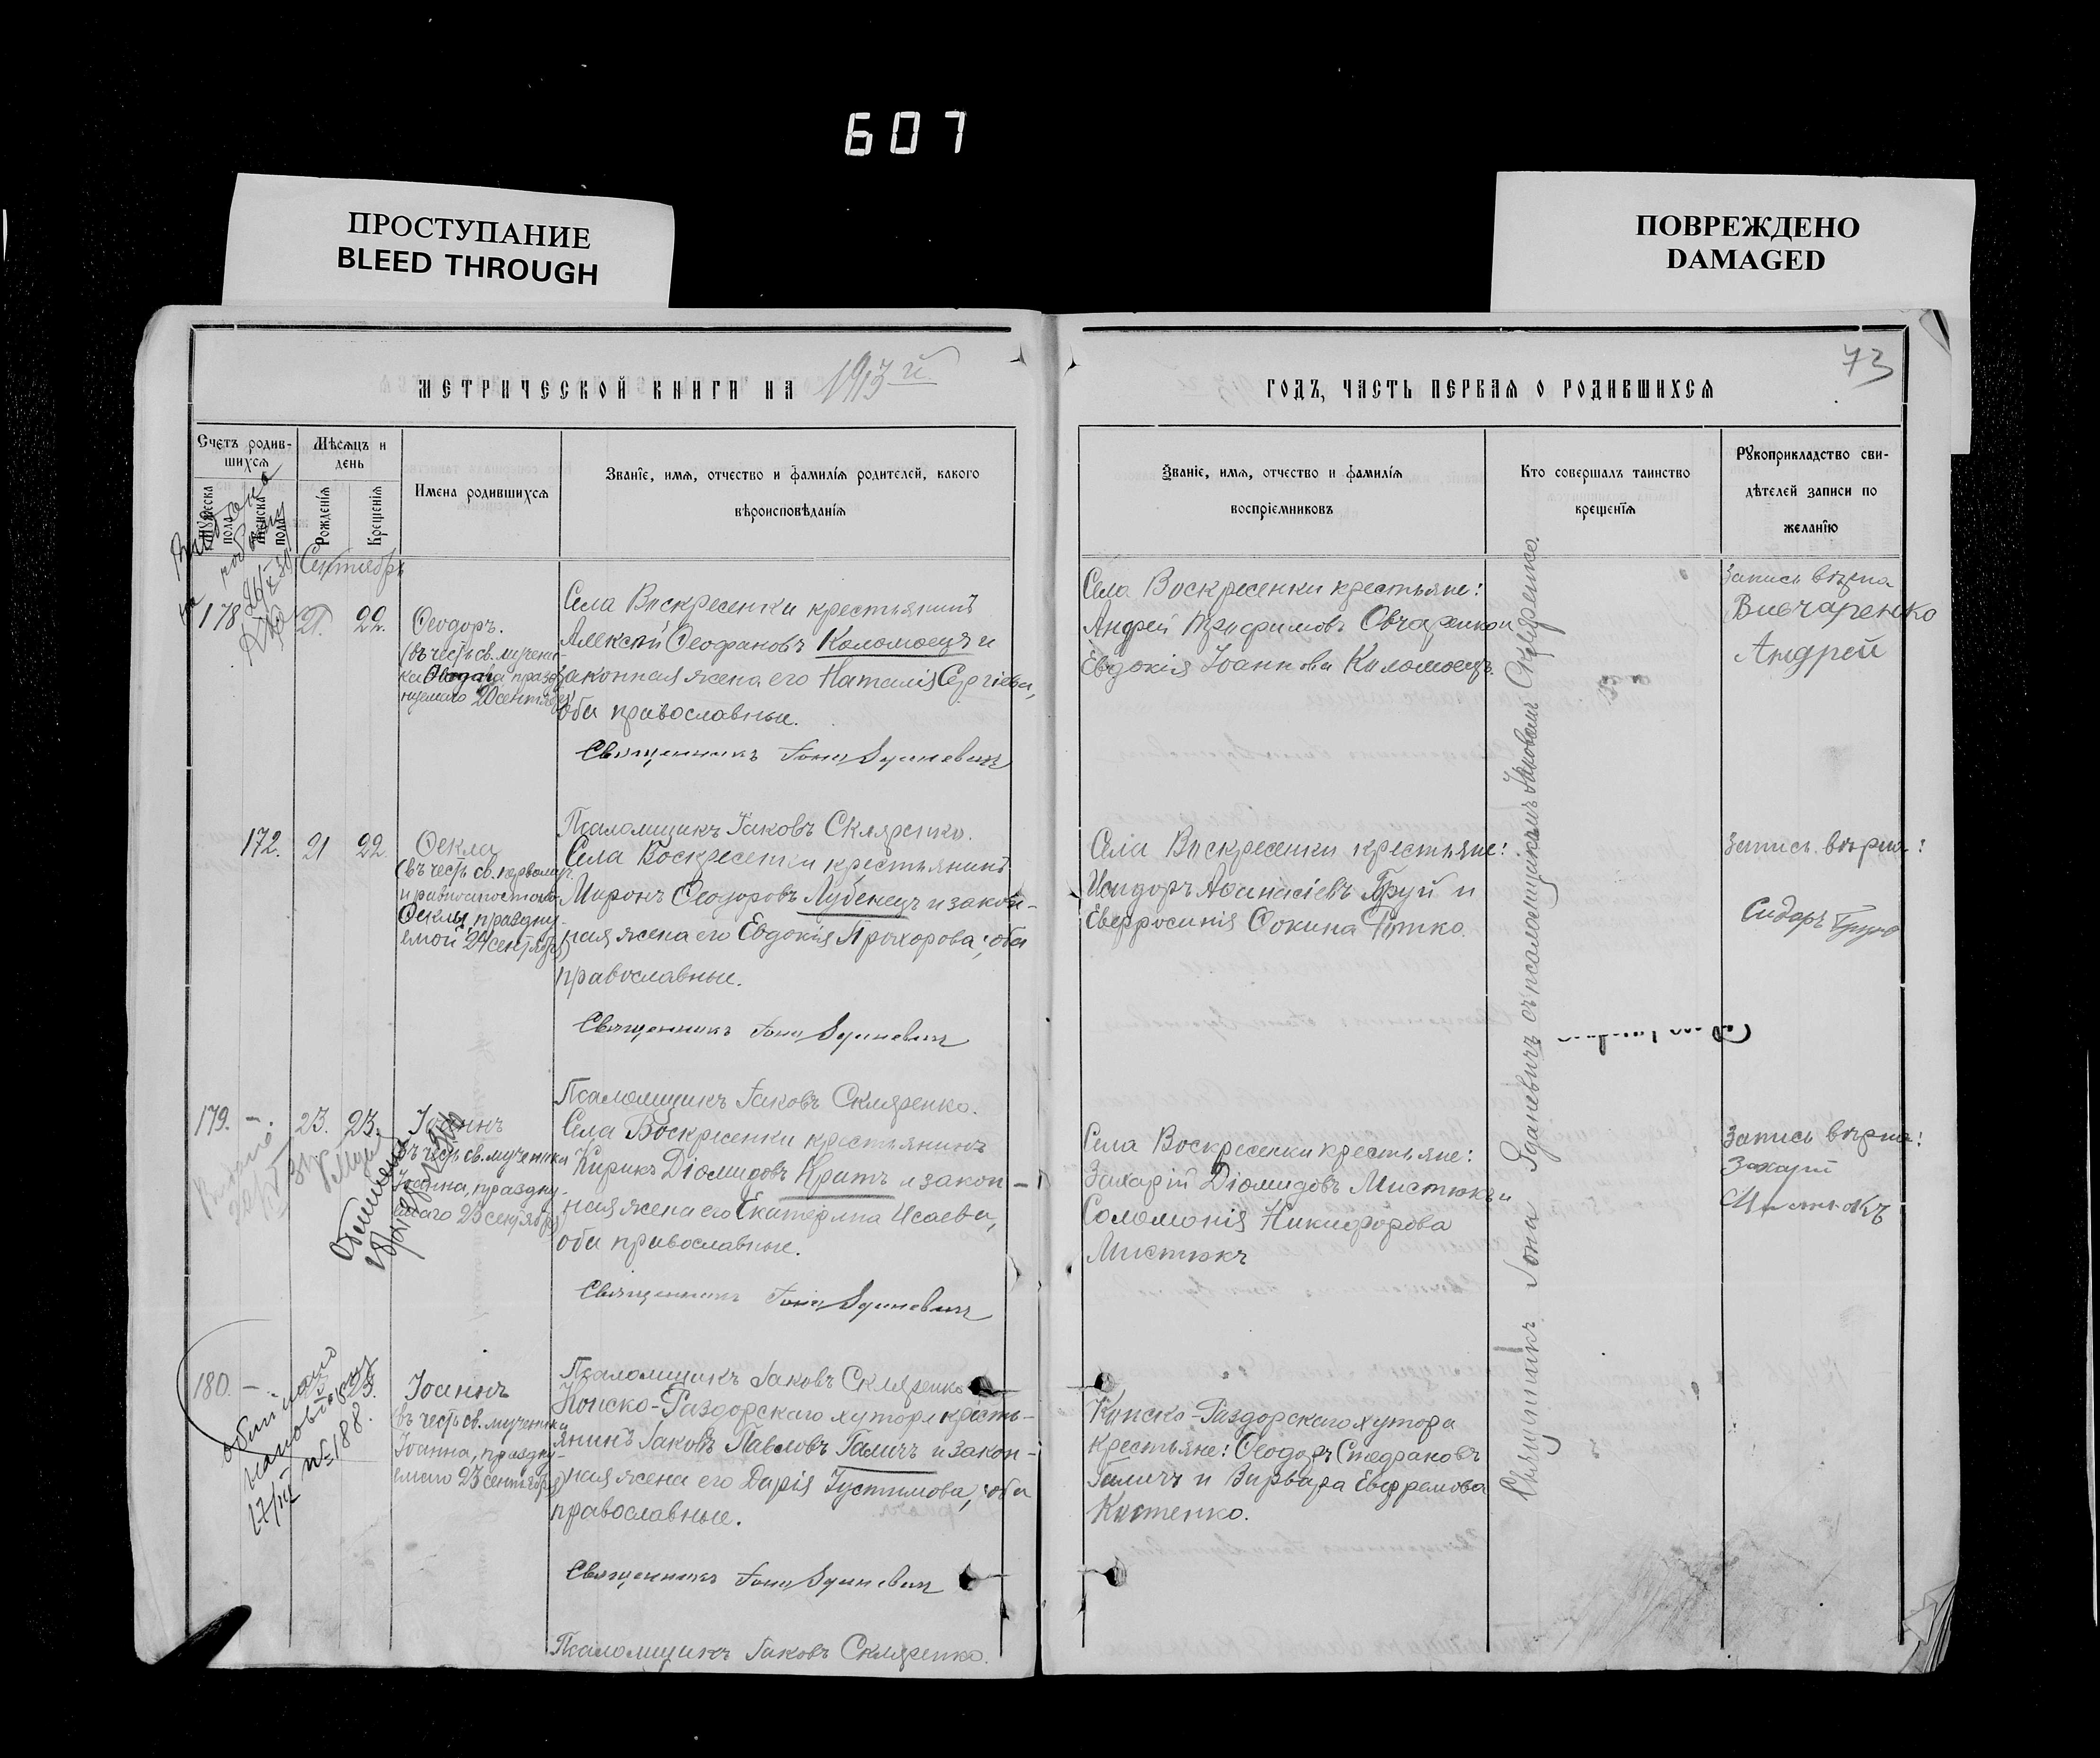 607
ПРОСТУПАНИЕ
BLEED THROUGH
ПОВРЕЖДЕНО
DAMAGED
МЕТРИЧЕСКОЙ КНИГИ НА 1913 й
ГОДЪ, ЧАСТЬ ПЕРВАЯ О РОДИВШИХСЯ
73
Счетъ родив-
шихся
Мужеска
пола
Женска
пола
Мѣсяцъ и
день
Рожденія
Крещенія
Имена родившихся
Званіе, имя, отчество и фамилія родителей, какого
вѣроисповѣданія
Званіе, имя, отчество и фамилія
воспріемниковъ
Кто совершалъ таинство
крещенія
Рукоприкладство сви-
дѣтелей записи по
желанію
Сентябрь
178
21.
22.
Ѳеодоръ.
(въ честь св. мучени-
ка Ѳеодора празд-
нуемаго 20 сентября)
Села Воскресенки крестьянинъ
Алексѣй Ѳеофановъ Коломоецъ и
законная жена его Наталія Сергіева,
оба православные.
Священникъ Іона
Псаломщикъ Іаковъ Скляренко.
Села Воскресенки крестьяне:
Андрей Трофимовъ Овчаренко и
Евдокія Іоаннова Коломоецъ.
Запись вѣрна
Вивчаренко
Андрей
172.
21
22.
Ѳекла
(въ честь св. первомуч.
и равноапостольн.
Ѳеклы, праздну-
емой 24 сентября)
Села Воскресенки крестьянинъ
Миронъ Ѳеодоровъ Лубенецъ и закон-
ная жена его Евдокія Прохорова; оба
православные.
Священникъ Іона
Псаломщикъ Іаковъ Скляренко.
Села Воскресенки крестьяне:
Исидоръ Аѳанасіевъ Груй и
Евфросинія Ѳокина
Запись вѣрна:
Сидоръ Груй
179. -.
23.
23.
Іоаннъ
(въ честь св. мученика
Іоанна, праздну-
емаго 23 сентября)
Села Воскресенки крестьянинъ
Кирикъ Діомидовъ Кратъ и закон-
ная жена его Екатерина Исаева,
оба православные.
Священникъ Іона
Псаломщикъ Іаковъ Скляренко
Села Воскресенки крестьяне:
Захарій Діомидовъ Мистюкъ и
Соломонія Никифорова
Мистюкъ
Запись вѣрна:
Захарій
Мистюкъ
180. -.
23.
Іоаннъ
(въ честь св. мученика
Іоанна, праздну-
емаго 23 сентября)
№ 188.
Конско-Раздорскаго хутора кресть-
янинъ Іаковъ Павловъ Галичъ и закон-
ная жена его Дарія Іустинова, оба
православные.
Священникъ Іона
Псаломщикъ Іаковъ Скляренко.
Конско-Раздорскаго хутора
крестьяне: Ѳеодоръ Стефановъ
Галичъ и Варвара Евфремова
Костенко.
Священникъ Іона съ псаломщикомъ Іаковомъ Скляренко.